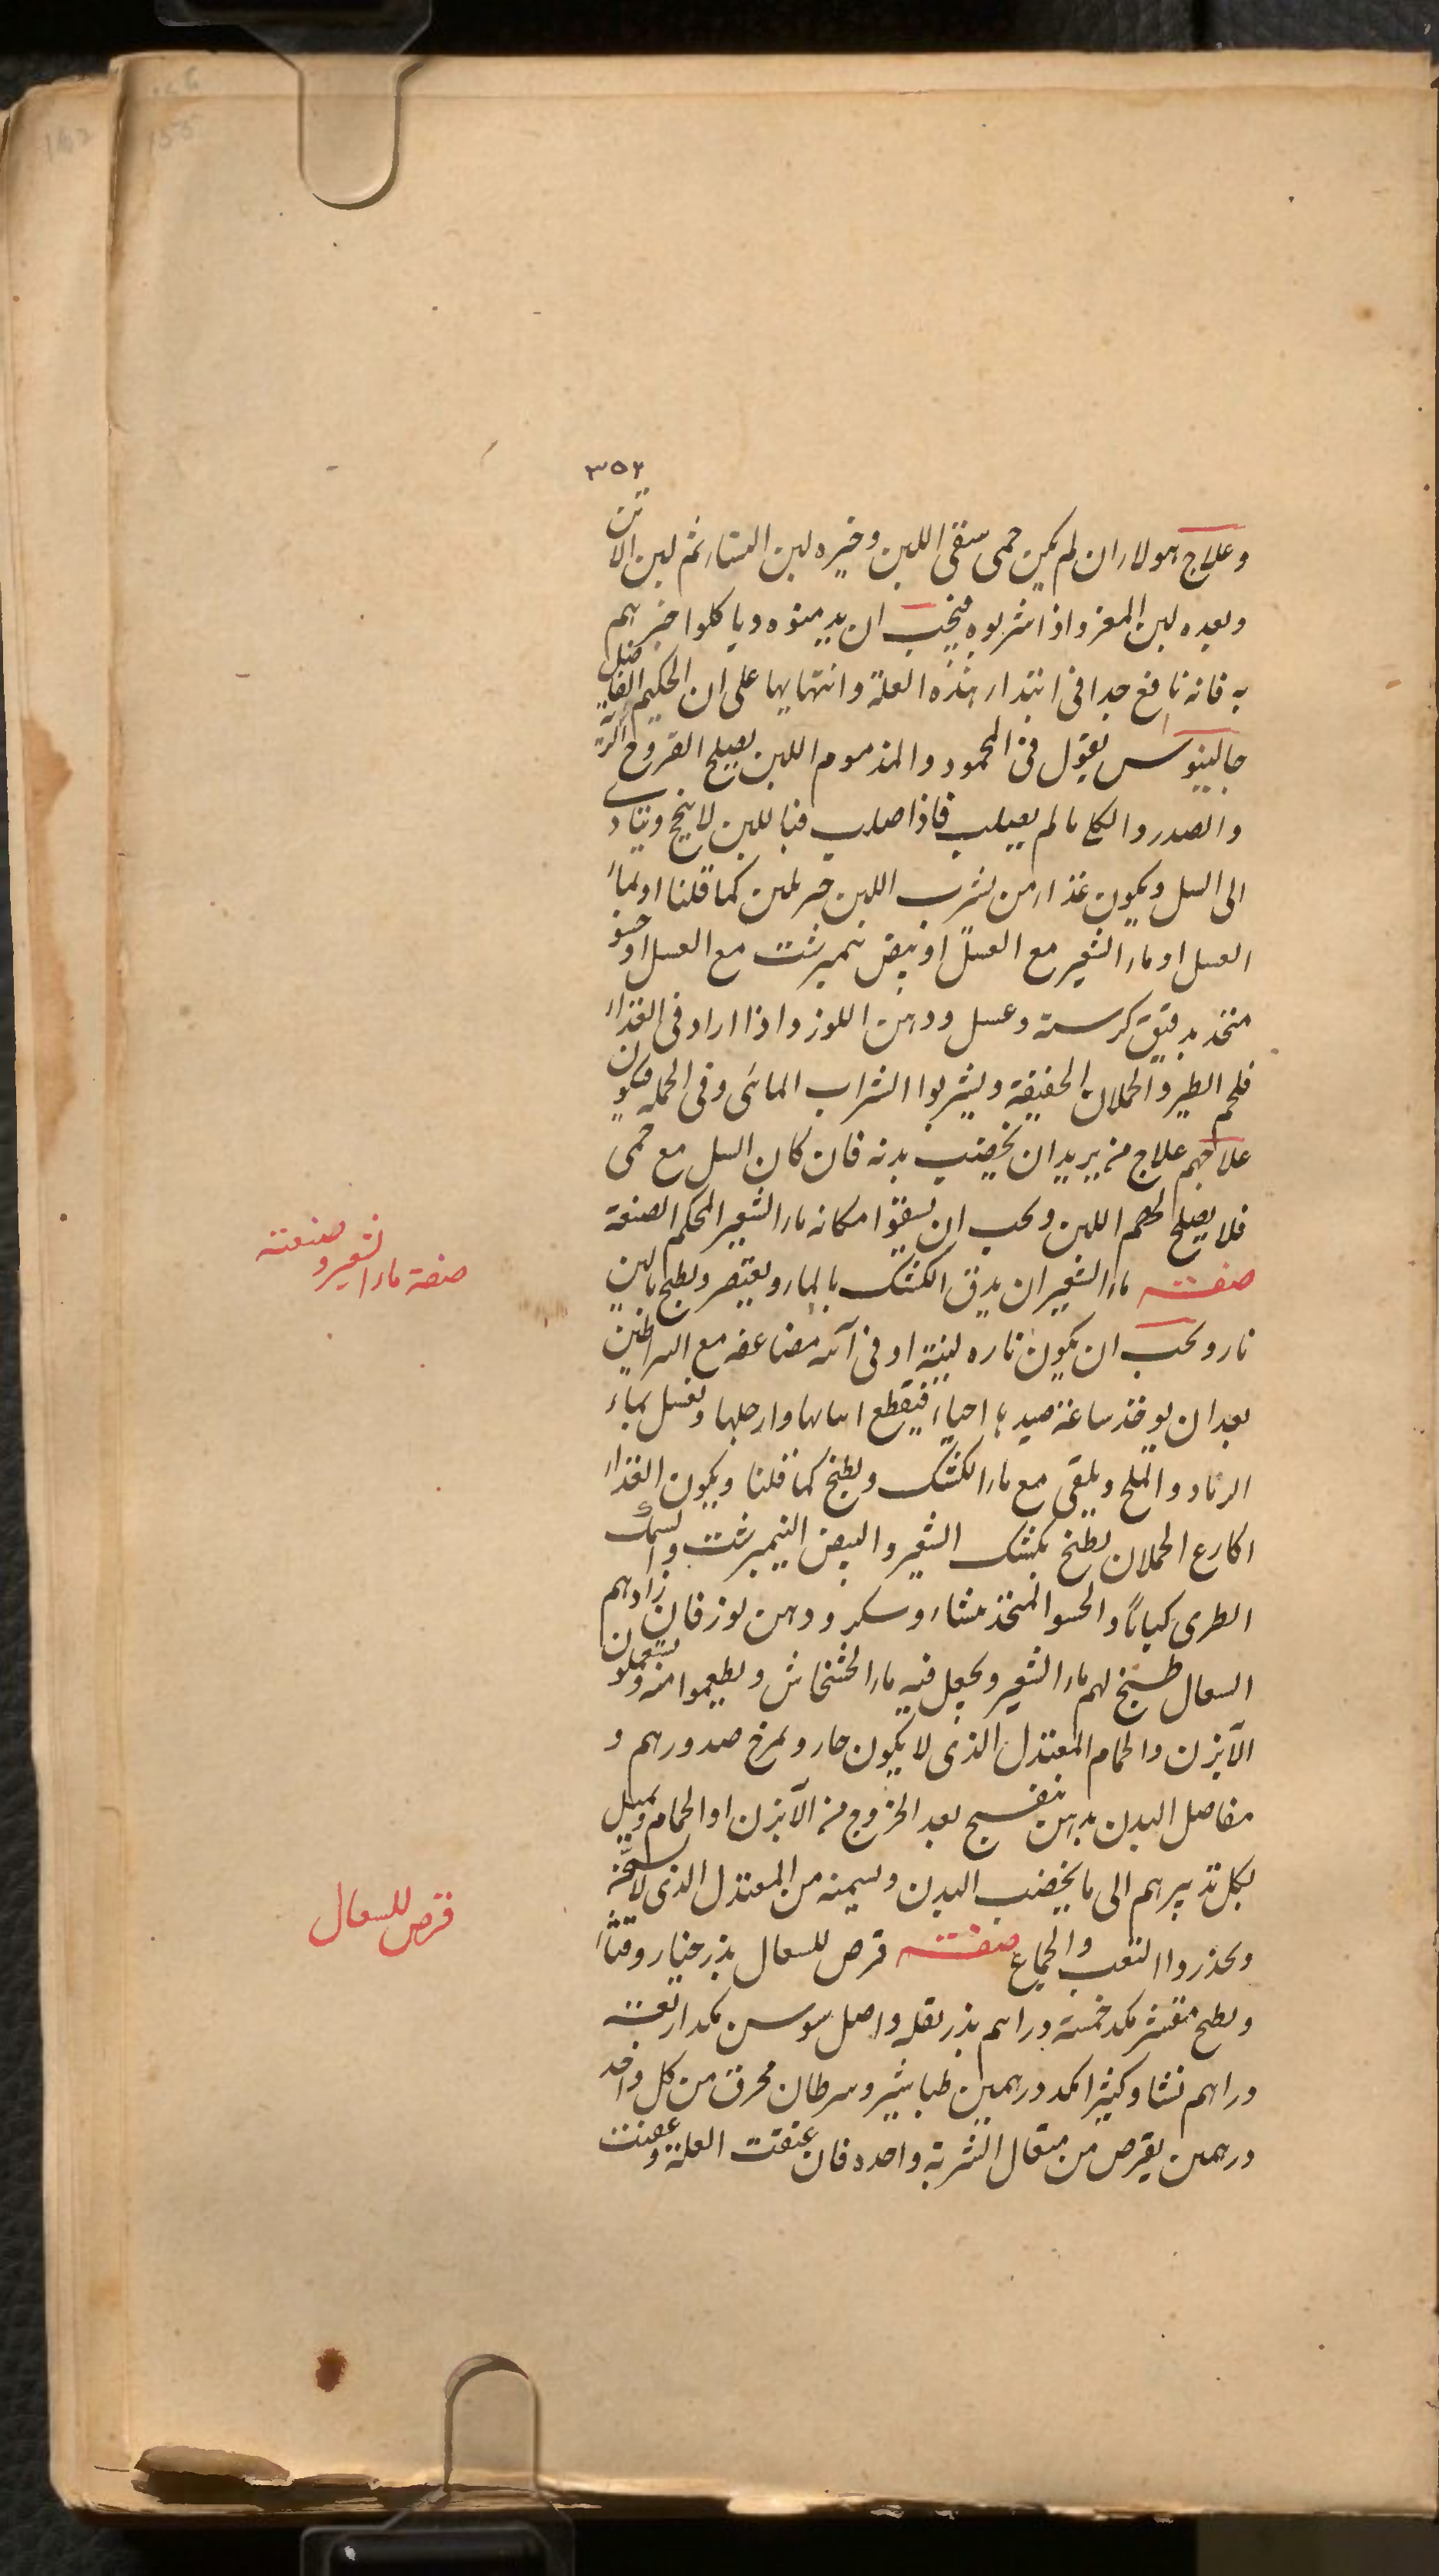 ٣٥٢
وعلاج هولاء ان لم يكن حمى سقى اللبن وخيره لبن النساء ثم لبن الاتن
وبعده لبن المعز واذا شربوه فيجب ان يدمنوه وياكلوا خبزهم
به فانه نافع جدا فى ابتداء هذه العلة وانتهايها على ان الحكيم الفاضل
جالينوس يقول فى المحمود والمذموم اللبن يصلح القروح الرية
والصدر والكلى ما لم يصلب فاذا صلب فباللبن لا ينجح ويتادى
الى السل ويكون غذاء من يشرب اللبن خبز بلبن كما قلنا او بماء
العسل او ماء الشعير مع العسل او بيض نيمبرشت مع العسل او حسو
متخذ بدقيق كرسنة وعسل ودهن اللوز واذا اراد فى الغذاء
فلحم الطير والحملان الخفيفة ويشربوا الشراب المائى وفى الجملة فيكون
علاجهم علاج من يريد ان يخصب بدنه فان كان السل مع حمى
فلا يصلح لهم اللبن ويجب ان يسقوا مكانه ماء الشعير المحكم الصنعة
صفته ماء الشعير ان يدق الكشك بالماء ويعتصر ويطبخ بالين
نار ويجب ان يكون ناره لينة او فى آنية مضاعفه مع السراطين
بعد ان يوخذ ساعة صيدها احياء فيقطع ايديها وارجلها ويغسل بماء
الرماد والملح ويلقى مع ماء الكشك ويطبخ كما قلنا ويكون الغذاء
اكارع الحملان يطبخ بكشك الشعير والبيض النيمبرشت والسمك
الطرى كبابًا والحسو المتخذ بنشاء وسكر ودهن لوز فان زاد بهم
السعال طبخ لهم ماء الشعير ويجعل فيه ماء الخشخاش ويطعموا منه ويستعملون
الآبزن والحمام المعتدل الذى لا يكون حار ويمرخ صدورهم و
مفاصل البدن بدهن بنفسج بعد الخروج من الآبزن او الحمام ويميل
بكل تدبيرهم الى ما يخصب البدن ويسمنه من المعتدل الذى لا يسخن
ويحذروا التعب والجماع صفته قرص للسعال بذر خيار وقثاء
وبطيخ مقشر بكد خمسة دراهم بذر بقلة واصل سوسن بكد اربعة
دراهم نشا وكثيرا بكد درهمين طباشير وسرطان محرق من كل واحد
درهمين يقرص من مثقال الشربة واحده فان عتقت العلة وعفنت
صفة ماء الشعير و صنعته
قرص للسعال